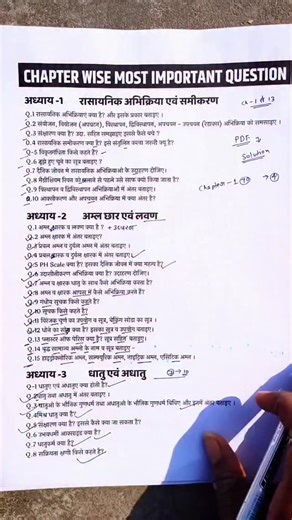 CHAPTER WISE MOST IMPORTANT QUESTION
अध्याय -1 रासायनिक अभिक्रिया एवं समीकरण
Q.1 रासायनिक अभिक्रियाएं क्या है? और इसके प्रकार बताइए ।
Q.2 संयोजन, वियोजन (अपघटन), विस्थापन, द्विविस्थापन, अपचयन - उपचयन (रेडाक्स) अभिक्रिया को समझाइए ।
Q.3 संक्षारण क्या है? उदा. सहित समझाइए इससे कैसे बचे ?
Q.4 रासायनिक समीकरण क्या है? इसे संतुलित करना जरूरी क्यू है?
Q.5 विकृतगंधिता किसे कहते है?
Q.6 बुझे हुए चूने का सूत्र बताइए ?
Q.7 दैनिक जीवन में रासायनिक अभिक्रियाओं के उदाहरण दीजिए।
Q.8 मैग्नीशियम रिबन को जलाने से पहले उसे साफ क्यो किया जाता है?
Q.9 विस्थापन व द्विविस्थापन अभिक्रियाओं में अंतर बताइए ।
Q.10 आक्सीकरण और अपचयन अभिक्रिया में क्या अंतर है?
PDF
Solution
Chapter - 1
अध्याय -2 अम्ल छार एवं लवण
Q.1 अम्ल क्षारक व लवण क्या है ?
Q.2 अम्ल क्षारक में अंतर बताइए?
Q.3 प्रबल अम्ल व दुर्बल अम्ल में अंतर बताइए।
Q.4 प्रबल क्षारक व दुर्बल क्षारक में अंतर बताइए।
Q.5 PH Scale क्या है? इसका दैनिक जीवन में क्या महत्व है?
Q.6 उदासीनीकरण अभिक्रिया क्या है? उदाहरण दीजिए।
Q.7 अम्ल व क्षारक धातु के साथ कैसे अभिक्रिया करता है?
Q.8 अम्ल व क्षारक आपस में कैसे अभिक्रिया करते है?
Q.9 गंधीय सूचक किसे कहते है?
Q.10 सूचक किसे कहते है?
Q.11 विरंजक चूर्ण का उपयोग व सूत्र, बेकिंग सोडा का सूत्र ।
Q.12 धोने का सोडा क्या है? इसका सूत्र व उपयोग बताइए ।
Q.13 प्लास्टर ऑफ पेरिस क्या है? सूत्र सहित बताइए।
Q.14 कुछ सामान्य अम्लों के नाम व सूत्र बताइए -
Q.15 हाइड्रोक्लोरिक अम्ल, सल्फ्यूरिक अम्ल, नाइट्रिक अम्ल, एसिटिक अम्ल ।
अध्याय -3 धातु एवं अधातु
Q.1 धातु एवं अधातु क्या होती है?
Q.2 धातु तथा अधातु में अंतर बताइए।
Q.3 धातुओं के भौतिक गुणधर्म तथा अधातुओं के भौतिक गुणधर्म लिखिए और इनमें अंतर बताइए ।
Q.4 मिश्र धातु क्या है?
Q.5 संक्षारण क्या है? इससे कैसे क्या जा सकता है?
Q.6 उभयधर्मी आक्साइड क्या है?
Q.7 धातुकर्म क्या है?
Q.8 सक्रियता श्रेणी किसे कहते है?